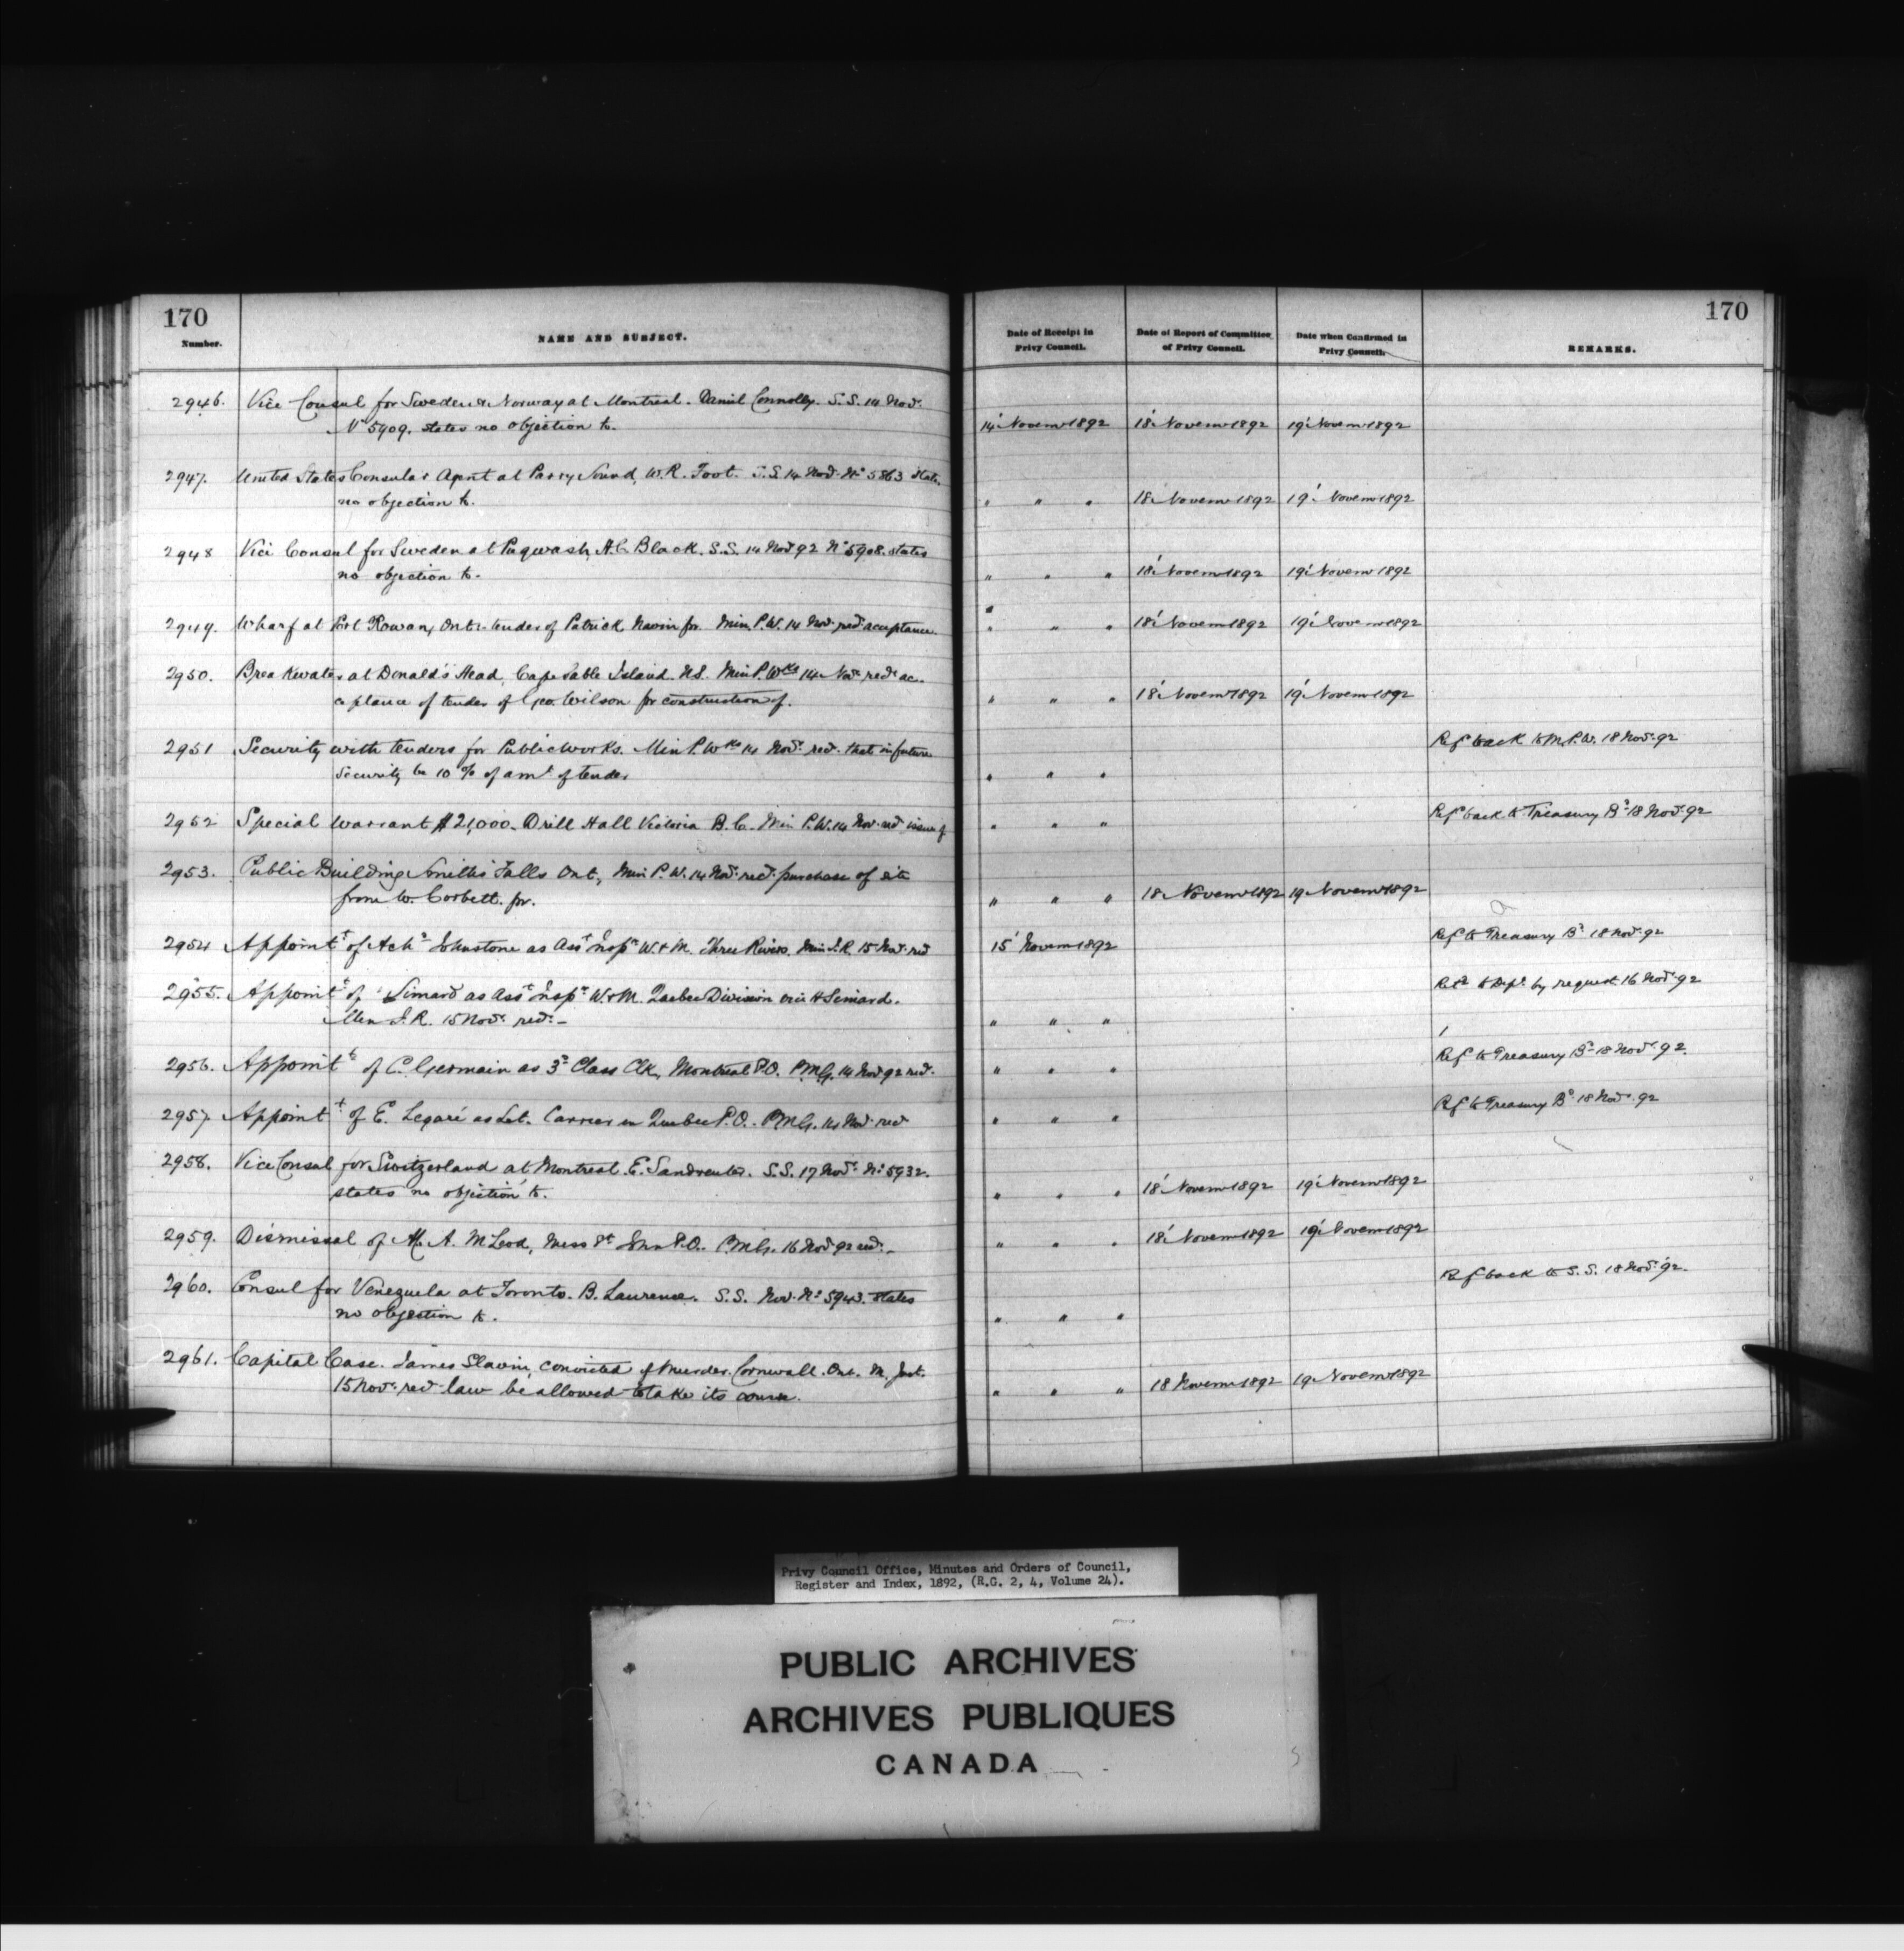 170
Number.
NAME AND SUBJECT.
Date of Receipt in
Privy Council.
Date of Report of Committee
of Privy Council.
Date when Confirmed in
Privy Council.
REMARKS.
170
2946. Vice Consul for Sweden & Norway at Montreal. Daniel Connolly. S.S. 14 Nov.
No 5909. states no objection to. 14' Novemr 1892 18' Novemr 1892 19' Novemr 1892
2947. United States Consular Agent at Parry Sound, W.R. Foot. S.S. 14 Nov. No 5863 states
no objection to. " " " 18 Novemr 1892 19' Novemr 1892
2948 Vice Consul for Sweden at Pugwash, A.C. Black. S.S. 14 Nov 92 No 5908. states
no objection to. " " " 18' Novemr 1892 19' Novemr 1892
2949. Wharf at Port Rowan, Ont. tender of Patrick Navin for. Min. P.W. 14 Nov. recd acceptance. " " " 18' Novemr 1892 19' Novemr 1892
2950. Breakwater at Donald's Head, Cape Sable Island. N.S. Min P. Wks 14 Nov. recd ac-
ceptance of tender of Geo. Wilson for construction of. " " " 18' Novemr 1892 19' Novemr 1892
2951 Security with tenders for Public Works. Min P. Wks 14 Nov. recd. that in future Ref back to M.P.W. 18 Nov. 92
Security be 10% of amt of tender. " " "
2952 Special Warrant $21,000. Drill Hall Victoria B.C. Min P.W. 14 Nov. recd issue of " " " Ref back to Treasury Bd 18 Nov. 92
2953. Public Building Smiths Falls Ont., Min P.W. 14 Nov. recd. purchase of site
from W. Corbett. for. " " " 18 Novemr 1892 19 Novemr 1892
2954 Appointt of Johnstone as Asst Inspr W. & M. Three Rivers. Min I.R. 15 Nov. recd 15' Novemr 1892 Ref to Treasury Bd 18 Nov. 92
2955. Appointt of Simard as Asst Inspr W. & M. Quebec Division vice H Simard. Retd to Dept. by request 16 Nov. 92
Min I.R. 15 Nov. recd. " " "
2956. Appointt of C. Germain as 3d Class Clk, Montreal P.O. P.M.G. 14 Nov 92 recd. " " " Ref to Treasury Bd 18 Nov. 92.
2957. Appointt of E. Legaré as Let. Carrier in Quebec P.O. P.M.G. 14 Nov. recd " " " Ref to Treasury Bd 18 Nov. 92
2958. Vice Consul for Switzerland at Montreal. E. Sandreuter. S.S. 17 Nov. No 5932.
states no objection to. " " " 18' Novemr 1892 19' Novemr 1892
2959. Dismissal of A. McLeod, Messr St John P.O. P.M.G. 16 Nov. 92 recd. " " " 18' Novemr 1892 19' Novemr 1892
2960. Consul for Venezuela at Toronto. B. Laurence. S.S. Nov. No 5943. states Ref back to S.S. 18 Nov. 92.
no objection to. " " "
2961. Capital Case. James Slavin, convicted of Murder. Cornwall. Ont. M. Just.
15 Nov. recd law be allowed to take its course. " " " 18 Novemr 1892 19 Novemr 1892
Privy Council Office, Minutes and Orders of Council,
Register and Index, 1892, (R.G. 2, 4, Volume 24).
PUBLIC ARCHIVES
ARCHIVES PUBLIQUES
CANADA